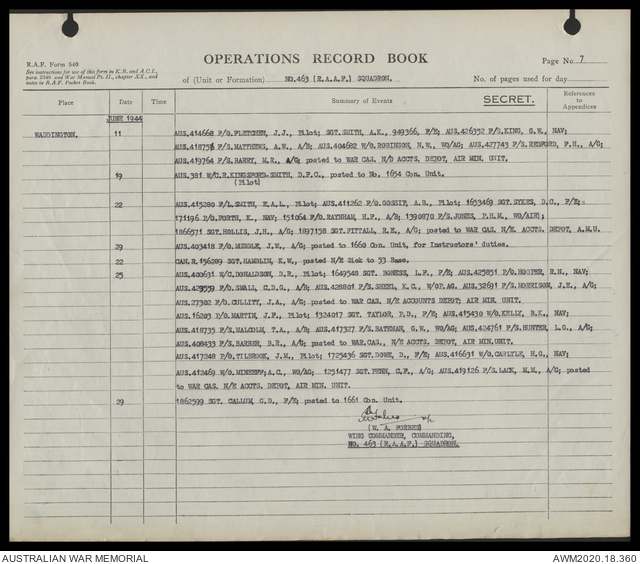 R.A.F. Form 540
See instructions for use of this form in K.R. and A.C.I.,
para. 2349 and War Manual Pt. II., chapter XX., and
notes in R.A.F. Pocket Book.
OPERATIONS RECORD BOOK
of (Unit or Formation) NO.463 (R.A.A.F.) SQUADRON.
Page No. 7
No. of pages used for day
Place Date Time Summary of Events SECRET. References to Appendices
JUNE 1944
WADDINGTON. 11 AUS.414668 F/O.FLETCHER, J.J., Pilot; SGT.SMITH, A.K., 949366, F/E; AUS.426352 F/S.KING, G.W., NAV;
F/S.MATTHEWS, A.W., A/B; AUS.404682 W/O.ROBINSON, N.W, WO/AG; AUS.427743 F/S.REDFORD, F.H., A/G;
AUS.419764 F/S.BARRY, M.R., A/G; posted to WAR CAS. N/D ACCTS. DEPOT, AIR MIN. UNIT.
19 AUS.381 W/C.R.KINGSFORD-SMITH, D.F.C., posted to No. 1654 Con. Unit.
(Pilot)
22 AUS.415280 F/L.SMITH, E.A.L., Pilot; AUS.411262 F/O.GOSSIP, A.B., Pilot; 1653469 SGT.SYKES, D.C., F/E;
171196 P/O.FORTH, K., NAV; 151064 F/O.RAYNHAM, H.F., A/B; 1390870 F/S.JONES, P.H.M., WO/AIR);
1866571 SGT.HOLLIS, J.H., A/G; 1897158 SGT.PITTALL, R.E., A/G; posted to WAR CAS. N/E. ACCTS. DEPOT, A.M.U.
29 AUS.403418 F/O.MUDDLE, J.W., A/G; posted to 1660 Con. Unit, for Instructors' duties.
22 CAN.R.156289 SGT.HAMBLIN, K.W., posted N/E Sick to 53 Base.
25 AUS.400631 W/C.DONALDSON, D.R., Pilot; 1649548 SGT. BONESS, L.F., F/E; AUS.425851 F/O.HOOPER, R.N., NAV;
F/O.SMALL, C.D.G., A/B; AUS.428801 F/S.SHEEL, K.C., W/OP.AG. AUS.32691 F/S.MORRISON, J.E., A/G;
AUS.27302 F/O.CULLITY, J.A., A/G; posted to WAR CAS. N/E ACCOUNTS DEPOT, AIR MIN. UNIT.
AUS.16203 P/O.MARTIN, J.F., Pilot; 1324017 SGT. TAYLOR, P.D., F/E; AUS.415430 W/O.KELLY, B.K., NAV;
AUS.418735 F/S.MALCOLM, T.A., A/B; AUS.417327 F/S.BATEMAN, G.W., WO/AG; AUS.424761 F/S.HUNTER, L.G., A/G;
AUS.408433 F/S.BARBER, B.R., A/G; posted to WAR.CAS., N/E ACCTS. DEPOT, AIR MIN.UNIT.
AUS.417248 P/O.TILBROOK, J.M., Pilot; 1725436 SGT.DOWE, D., F/E; AUS.416631 W/O.CARLYLE, H.G., NAV;
AUS.412469 W/O.MINEEFF;A.C., WO/AG; 1251477 SGT.PENN, C.F., A/G; AUS.419126 F/S.LACK, M.M., A/G; posted
to WAR CAS. N/E ACCTS. DEPOT, AIR MIN. UNIT.
29 1862599 SGT. CALLUM, G.D., F/E; posted to 1661 Con. Unit.
(W. A. FORBES)
WING COMMANDER, COMMANDING,
NO. 463 (R.A.A.F.) SQUADRON.
AUSTRALIAN WAR MEMORIAL
AWM2020.18.360